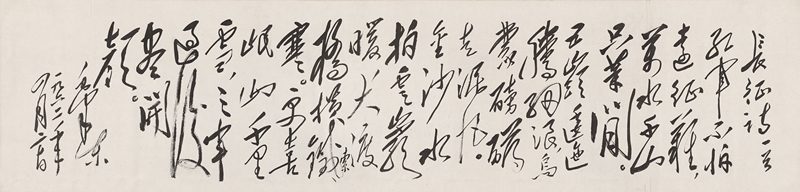 長征詩一首
红軍不怕
遠征難，
萬水千山
只等闲。
五嶺逶迤
腾细浪，烏
蒙磅礴
走泥丸。
金沙水
拍雲崖
暖，大渡
橋横鐵索
寒。更喜
岷山千里
雪，三軍
過後
盡開
顔。
毛澤東
一九六二年
四月二十日